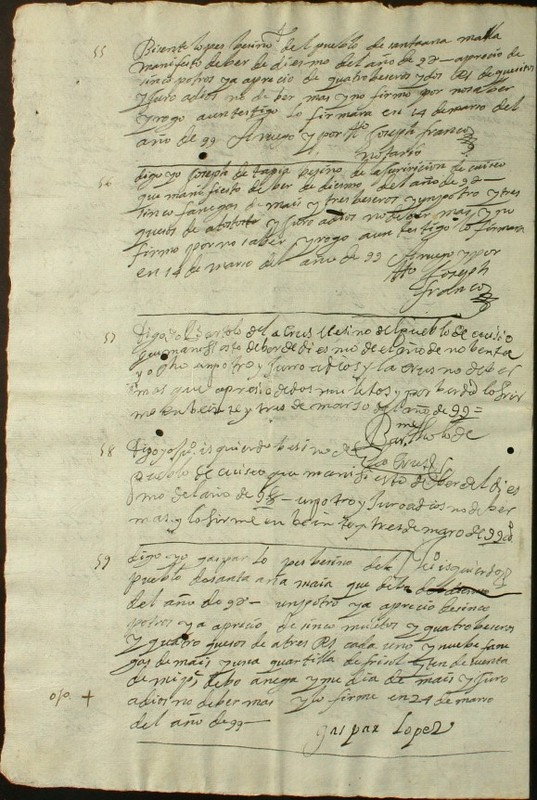 55 Bisente lopes besino del pueblo de santa ana maia
manifiesto deber de diesmo del año de 98 – aprecio de
sinco potros ya aprecio de quatro beseros y dos Rs de quesitos
y juro a dios no deber mas y no firmo por no saber
y rogo a un testigo lo firmara en 14 de marso del
año de 99 A ruego y por tto Joseph franco
notario
56 digo yo Joseph de tapia besino de la juridicion de cuiseo
que manifiesto deber de diesmo del año de 98 –
sinco fanegas de mais y tres beseros y un potro y tres
quesos de y juro a dios no deber mas y no
firmo por no saber y rogo a un testigo lo firmara
en 14 de marso del año de 99 A ruego y por
tto Joseph
franco
57 Digo yo Bartolo de la Crus besino del pueblo de cuiseo
que manifiesto deber de diesmo de el año de nobenta
y ocho un potro y Juro a dios y la crus no deber
mas que a presio de dos muletos y por berdad lo fir
me en beinte y tres de marso del año de 99 =
Bartholo de
la Crus
58 Digo yo isquierdo besino de el
pueblo de cuiseo que manifiesto deber del dies
mo del año de 98 – un potro y Juro a dios no deber
mas y lo firme en beinte y tres de marso de 99 a
isquierdo
59 digo yo gaspar lopes besino del
pueblo de santa ana maia que debo de diesmo
del año de 98 – un potro ya aprecio de sinco
potros ya aprecio de sinco muletos y quatro beseros
y quatro quesos de a tres Rs cada uno y nuebe fane
gas de mais y una quartilla de frisol y ten de cuenta
de mi debo anega y media de mais y juro
a dios no deber mas y lo firme en 24 de marso
del año de 99 –
gaspar Lopez